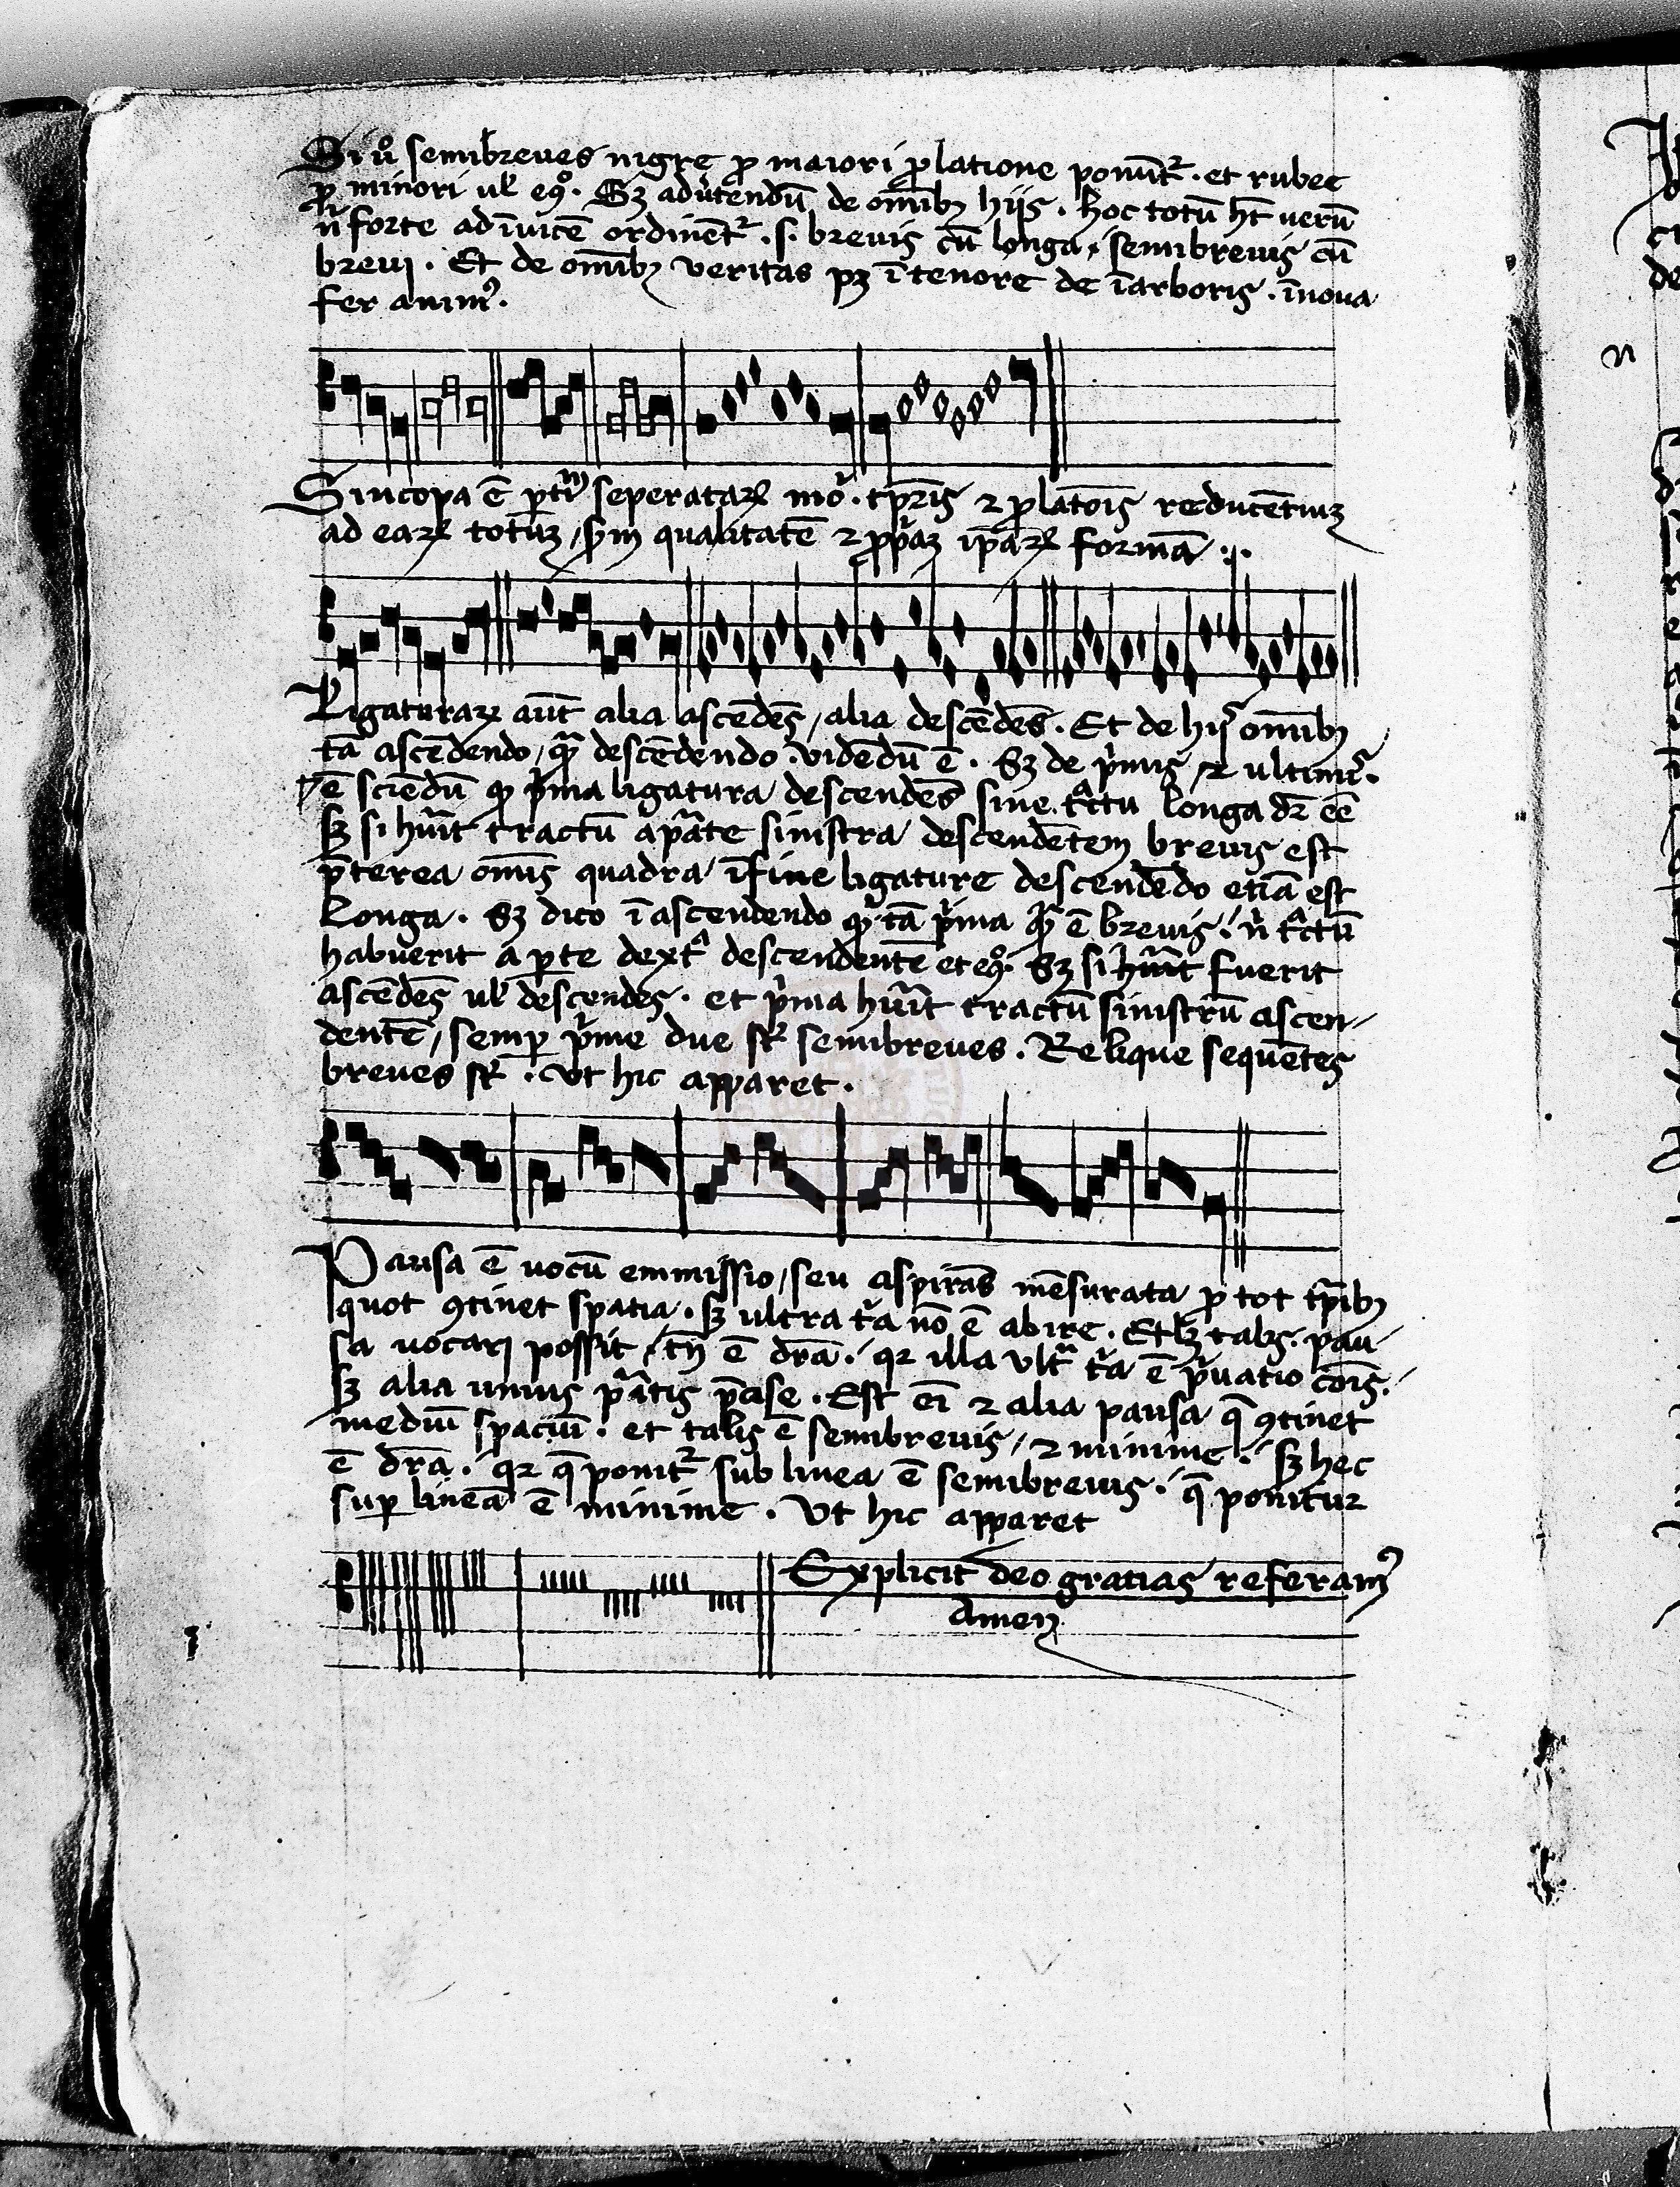 Si ů semibreues nigre ꝓ maiori ꝓlatione ponūt᷑ . et rubee
ꝓ minori ul eꝯ . Sꝫ aduͭtendū de omībꝫ hijs . hoc totū hꝫ̄t uerū
n̄ forte adīuicē ordinent᷑ . s. breuis cū longa / semibreuis cū
breui . Et de omībꝫ veritas pꝫ ī tenore de īarboris . īnoua
fer animꝰ .
Sincopa ē seperataꝝ mō . tp̄ris ⁊ ꝓlatōis reducētiuꝫ
ad eaꝝ totuꝫ / qualitatē ⁊ ip̄aꝝ formā .
Ligaturaꝝ aūt alia ascēdēs / alia descēdēs . Et de hijs omībꝫ
tā ascēdendo / qͣ descēdendo . vidēdū ē . Sꝫ de pͥmis / ⁊ ultimis .
ē sciēdū ꝙ pͥma ligatura descendēs sine tͣctu longa dꝫ eē
sꝫ si huͥit tractū a pͣte sinistra descendētem breuis est
p̄terea omīs quadra ī fine ligature descendēdo etiā est
longa . Sꝫ dico ī ascendendo ꝙ tā pͥma qͣ ē breuis . n̄ tͣctū
habuerit a ꝑte dextͣ descendentē et eꝯ . Sꝫ si huͥit fuerit
ascēdēs ul descendēs . et pͥma huͥit tractū sinistrū ascen-
dentē / semꝑ pͥme due st̄ semibreues . Relique sequētes
breues st̄ . Vt hic apparet .
Pausa ē uocū emmissio / seu aspirās mēsurata ꝓ tot tp̄ibꝫ
quot ꝯtinet spatia . sꝫ ultra tͥa nō ē abire . Etlꝫ talis . pau-
sa uocari possit / tn̄ ē dr̄a . qꝛ illa vltͣ tͥa ē pͥuatio cōis .
sꝫ alia unius ꝑtis pause . Est ei ⁊ alia pausa q̄ ꝯtinet
mediū spaciū . et talis ē semibreuis / ⁊ minime . sꝫ hec
ē dr̄a . qꝛ q̄ ponit᷑ sub linea ē semibreuis . q̄ ponitur
suꝑ lineā ē minime . Vt hic apparet
Explicit deo gratias referamꝰ
Amen